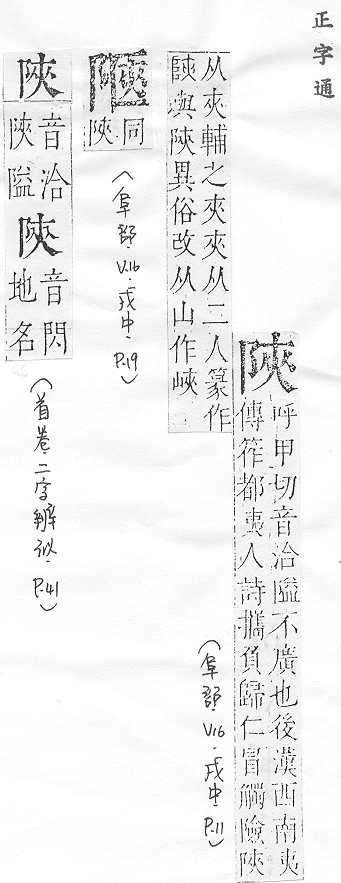 正字通
陜
呼甲切音洽隘不廣也後漢西南夷
傳筰都夷人詩攜負歸仁冒觸險陜
(阜部·V.16·戌中·P.11)
从夾輔之夾夾从二人篆作
與陝異俗改从山作峽
同
陜
(阜部·V.16·戌中·P.19)
陜
音洽
陜隘
陝
音閃
地名
(首卷·二字辨似·P.41)